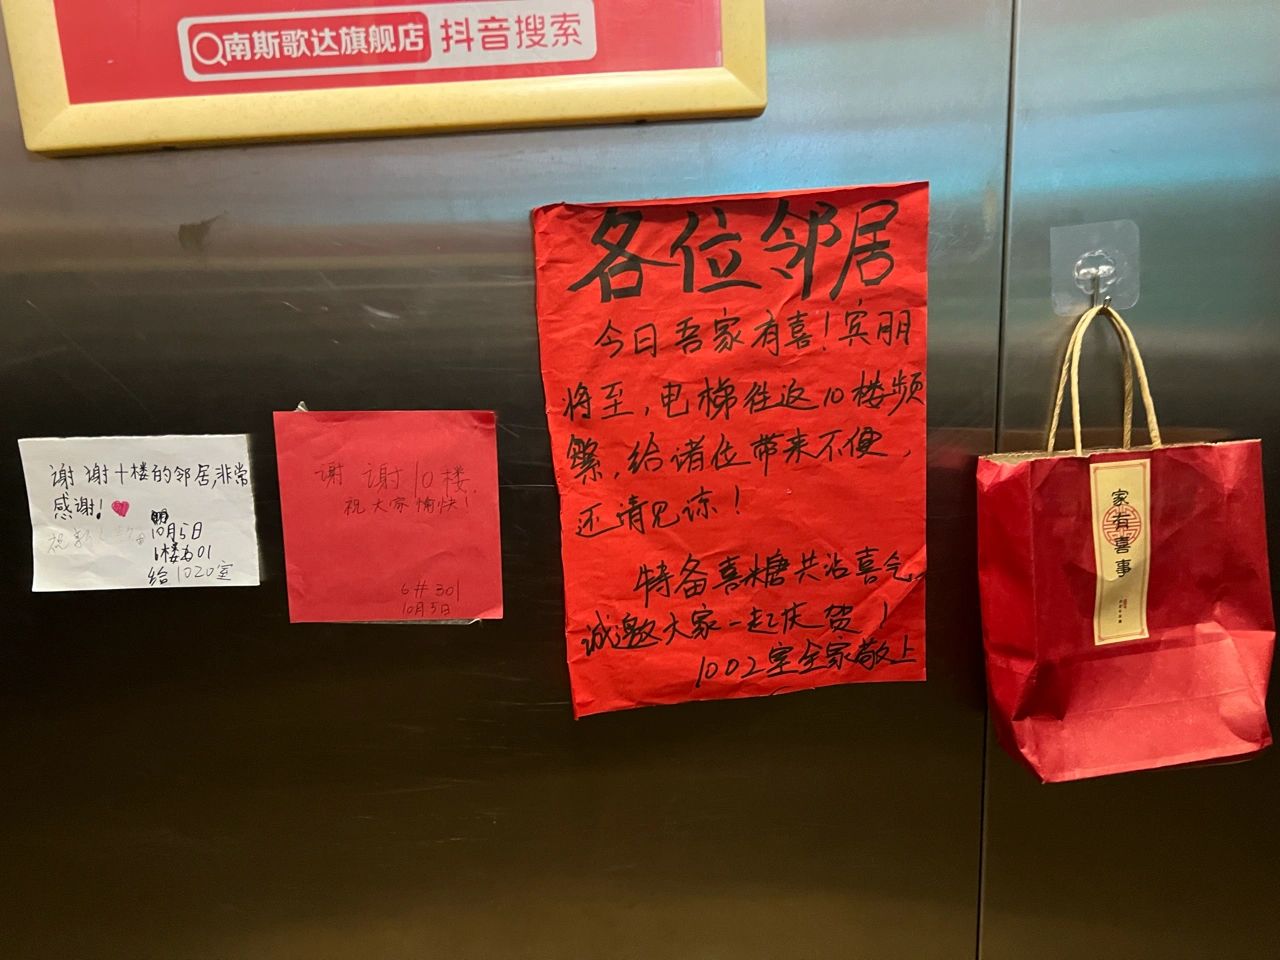 南斯歌达旗舰店 抖音搜索
各位邻居
今日吾家有喜！宾朋
将至，电梯往返10楼频
繁，给诸位带来不便，
还请见谅！
特备喜糖共沾喜气，
诚邀大家一起庆贺！
1002室全家敬上
谢谢十楼的邻居,非常
感谢！
祝
10月5日
1楼
01
给1020室
谢谢10楼.
祝大家愉快！
6#301
10月5日
家有喜事